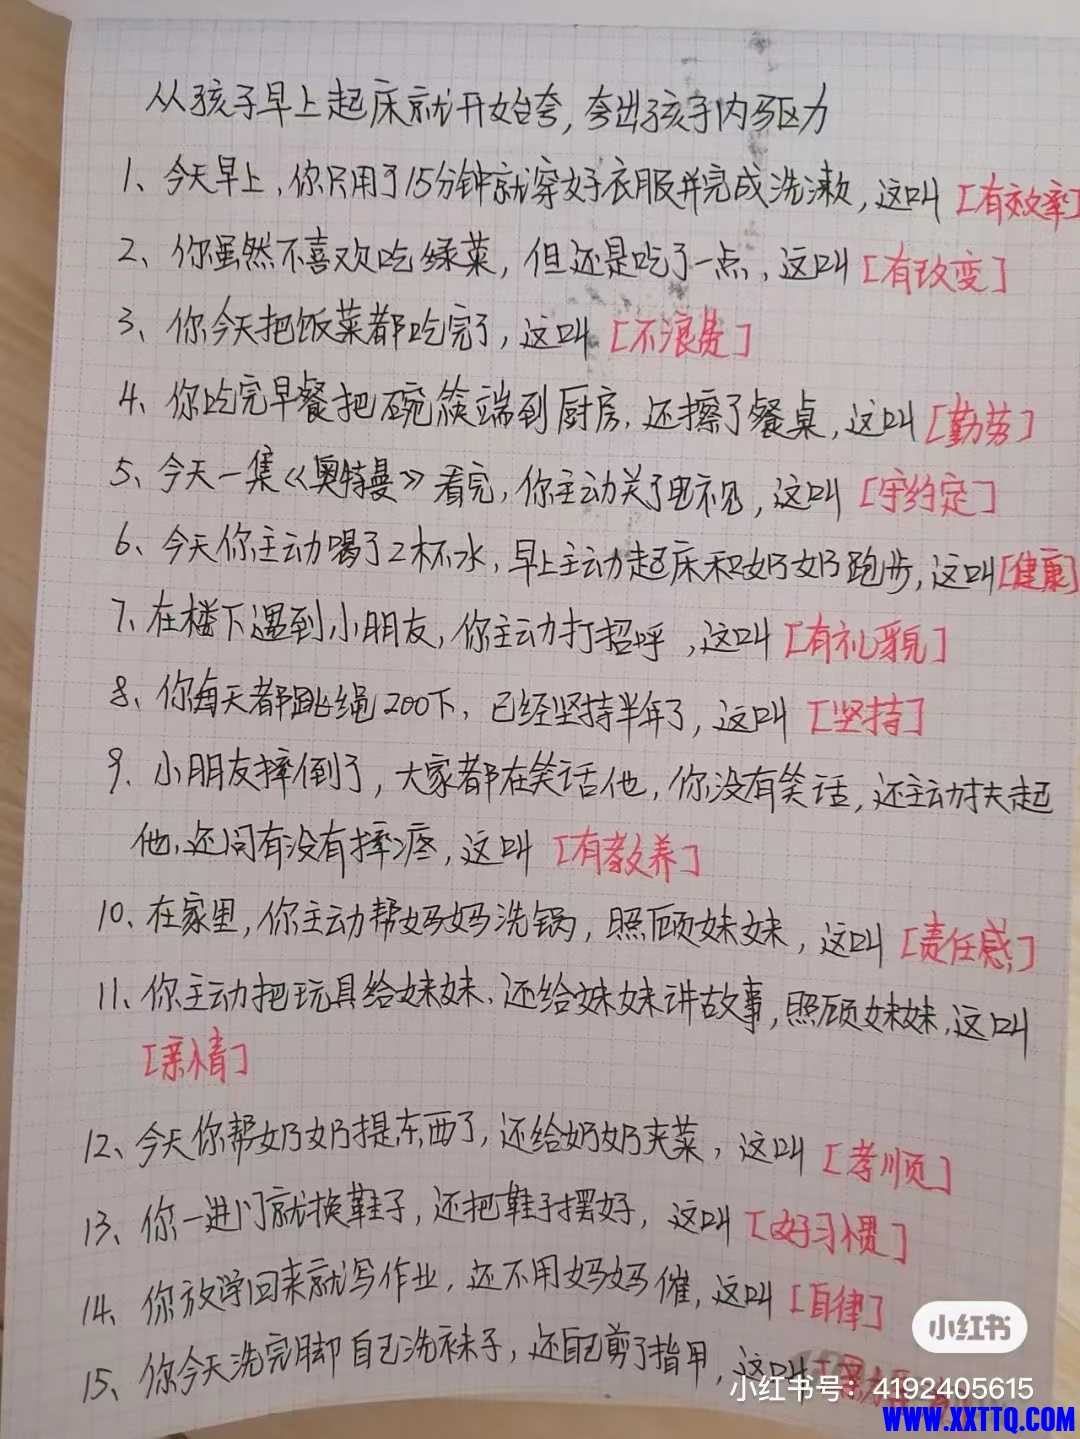 从孩子早上起床就开始夸,夸出孩子内驱力
1、今天早上,你只用了15分钟就穿好衣服并完成洗漱,这叫[有效率]
2、你虽然不喜欢吃绿菜,但还是吃了一点,这叫[有改变]
3、你今天把饭菜都吃完了,这叫[不浪费]
4、你吃完早餐把碗筷端到厨房,还擦了餐桌,这叫[勤劳]
5、今天一集《奥特曼》看完,你主动关了电视,这叫[守约定]
6、今天你主动喝了2杯水,早上主动起床和奶奶跑步,这叫[健康]
7、在楼下遇到小朋友,你主动打招呼,这叫[有礼貌]
8、你每天都跳绳200下,已经坚持半年了,这叫[坚持]
9、小朋友摔倒了,大家都在笑话他,你没有笑话,还主动扶起
他,还问有没有摔疼,这叫[有教养]
10、在家里,你主动帮妈妈洗锅,照顾妹妹,这叫[责任感]
11、你主动把玩具给妹妹、还给妹妹讲故事,照顾妹妹,这叫
[亲情]
12、今天你帮奶奶提东西了,还给奶奶夹菜,这叫[孝顺]
13、你一进门就换鞋子,还把鞋子摆好,这叫[好习惯]
14、你放学回来就写作业,还不用妈妈催,这叫[自律]
小红书
15、你今天洗完脚自己洗袜子,还自己剪了指甲,这叫
小红书号:4192405615
WWW.XXTTQ.COM